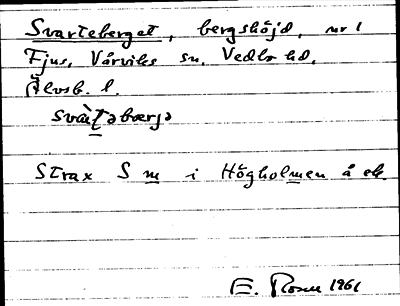 Svarteberget, bergshöjd, nr 1
Fjus, Vårviks sn, Vedbo hd,
Älvsb. l.
svàʈəbærjə
Strax S m i Högholmen å ek.
E. Rosen 1961